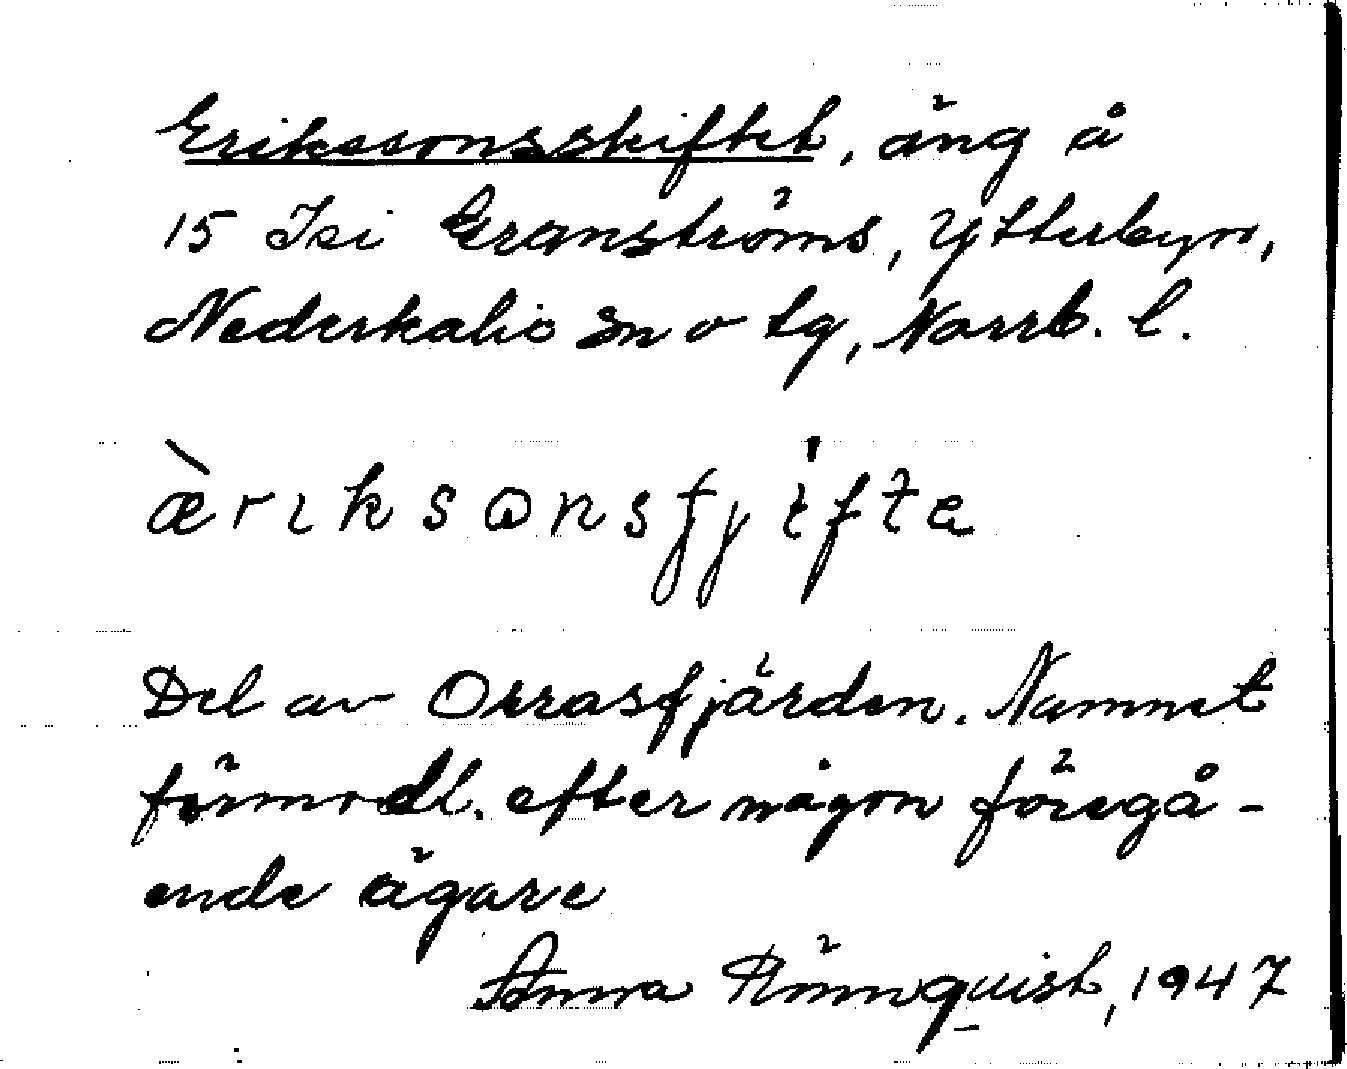 Erikssonsskiftet, äng å
15 Isi Granströms, Ytterbyn,
Nederkalix sn o tg, Norrb. l.
æ̀riksɷnsʃjiftə
Del av Orrasfjärden. Namnet
förmodl. efter någon föregå-
ende ägare
Anna Rönnquist, 1947